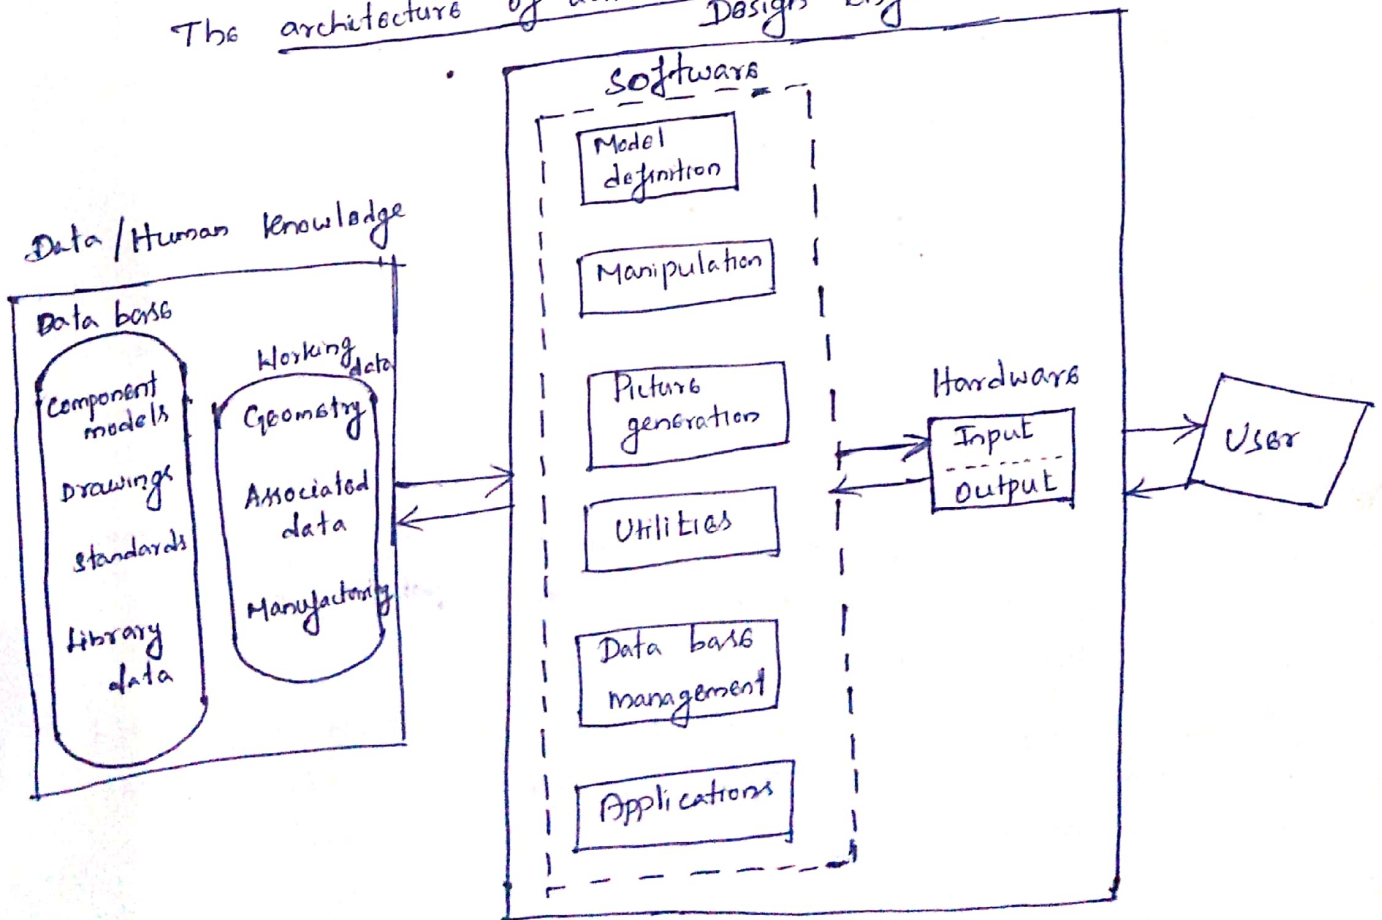 The architecture of
Design
Software
Model
definition
Manipulation
Picture
generation
Utilities
Data base
management
Applications
Data/Human knowledge
Data base
Component
models
Drawings
Standards
Library
data
Working
data
Geometry
Associated
data
Manufacturing
Hardware
Input
Output
User